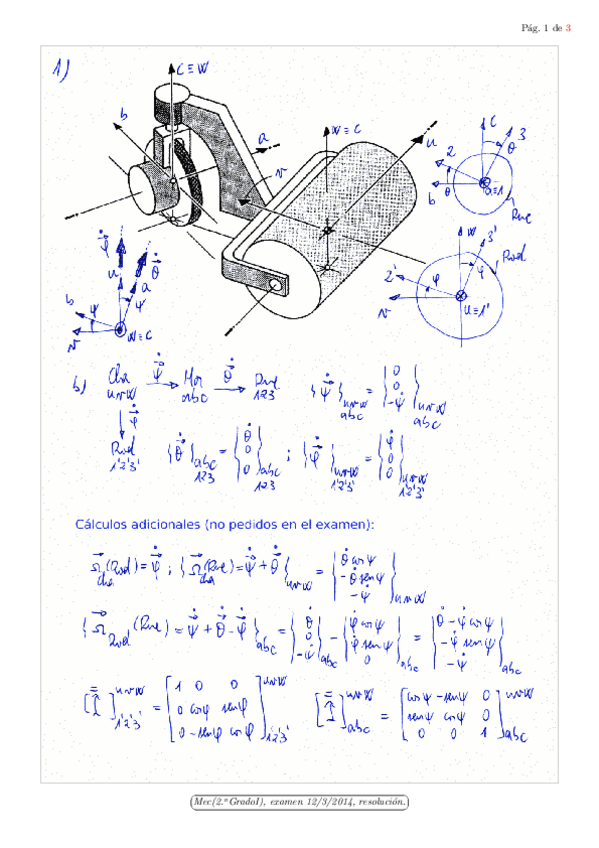 Pág. 1 de 3
1)
C ≡ W
b
a
v
W ≡ C
u
C
3
2
θ
b
θ
a≡1
Rue
W
3'
Rod
2'
φ
φ
v
u≡1'
φ̇
θ̇
u
a
b
ψ
ψ
v
W≡C
b) Cha uvw →ψ̇ Hor abc →θ̇ Rue 123 {ψ̇} uvw abc = {0 0 -ψ̇} uvw abc
↓φ̇
Rod 1'2'3' {θ̇} abc 123 = {θ̇ 0 0} abc 123 ; {φ̇} uvw 1'2'3' = {φ̇ 0 0} uvw 1'2'3'
Cálculos adicionales (no pedidos en el examen):
Ω⃗ Cha (Rod) = φ̇ ; {Ω⃗ Cha (Rue) = ψ̇ + θ̇} uvw = {θ̇ cos ψ -θ̇ sen ψ -ψ̇} uvw
{Ω⃗ Rod (Rue) = ψ̇ + θ̇ - φ̇} abc = {θ̇ 0 -ψ̇} abc - {φ̇ cos ψ φ̇ sen ψ 0} abc = {θ̇ - φ̇ cos ψ -φ̇ sen ψ -ψ̇} abc
[1] uvw 1'2'3' = [1 0 0 0 cos φ sen φ 0 -sen φ cos φ] uvw 1'2'3' [1] uvw abc = [cos ψ -sen ψ 0 sen ψ cos ψ 0 0 0 1] uvw abc
Mec(2.º GradoI), examen 12/3/2014, resolución.